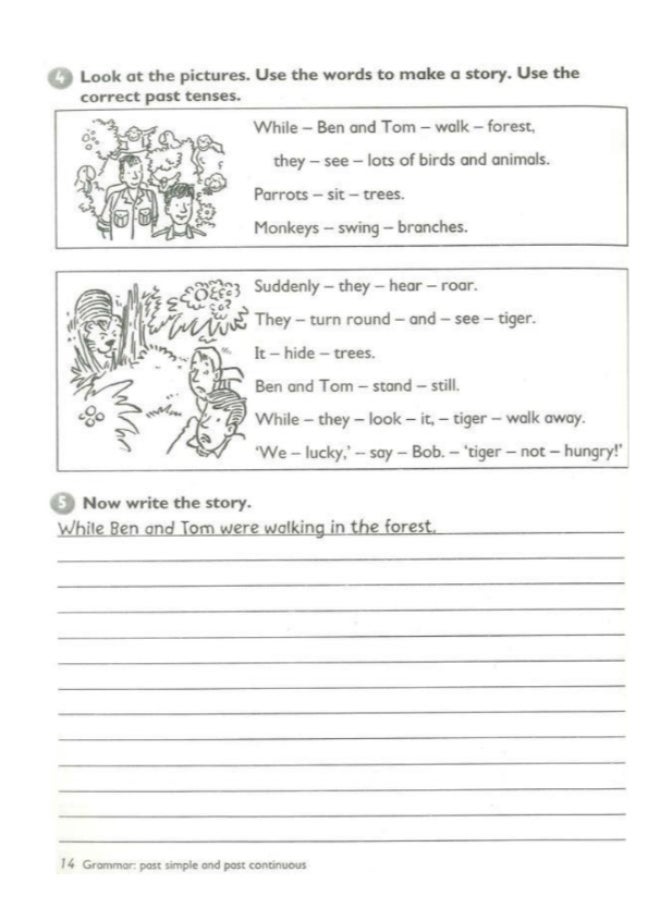 4 Look at the pictures. Use the words to make a story. Use the
correct past tenses.
While – Ben and Tom – walk – forest,
they – see – lots of birds and animals.
Parrots – sit – trees.
Monkeys – swing – branches.
Suddenly – they – hear – roar.
They – turn round – and – see – tiger.
It – hide – trees.
Ben and Tom – stand – still.
While – they – look – it, – tiger – walk away.
‘We – lucky,’ – say – Bob. – ‘tiger – not – hungry!’
5 Now write the story.
While Ben and Tom were walking in the forest,
14 Grammar: past simple and past continuous